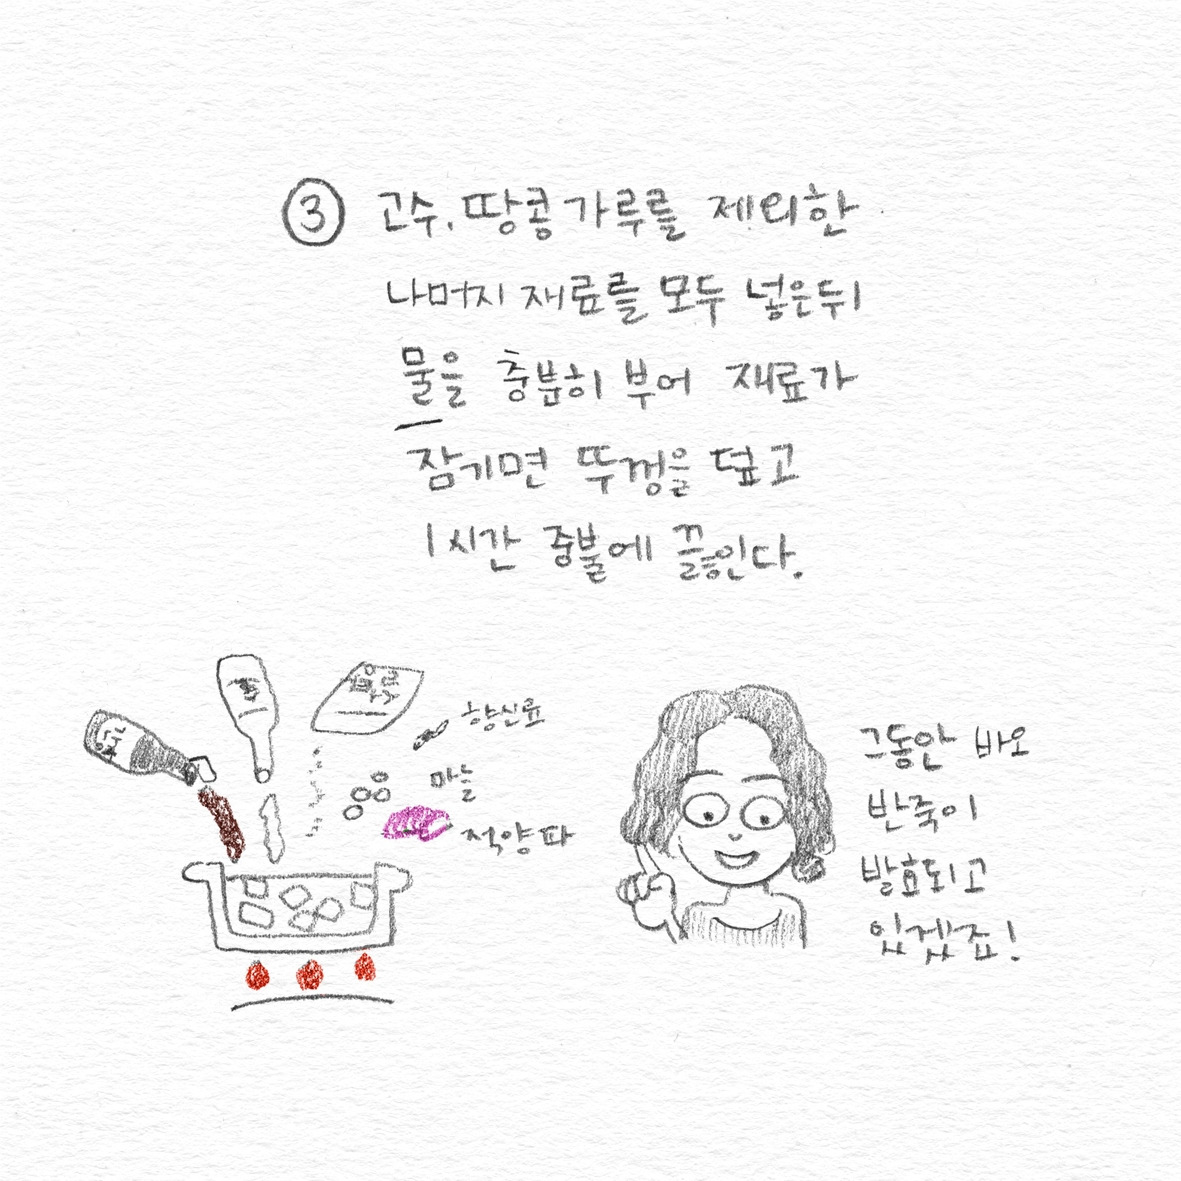 ③ 고수, 땅콩가루를 제외한
나머지 재료를 모두 넣은뒤
물을 충분히 부어 재료가
잠기면 뚜껑을 덮고
1시간 중불에 끓인다.
향신료
마늘
적양파
그동안 바오
반죽이
발효되고
있겠죠!